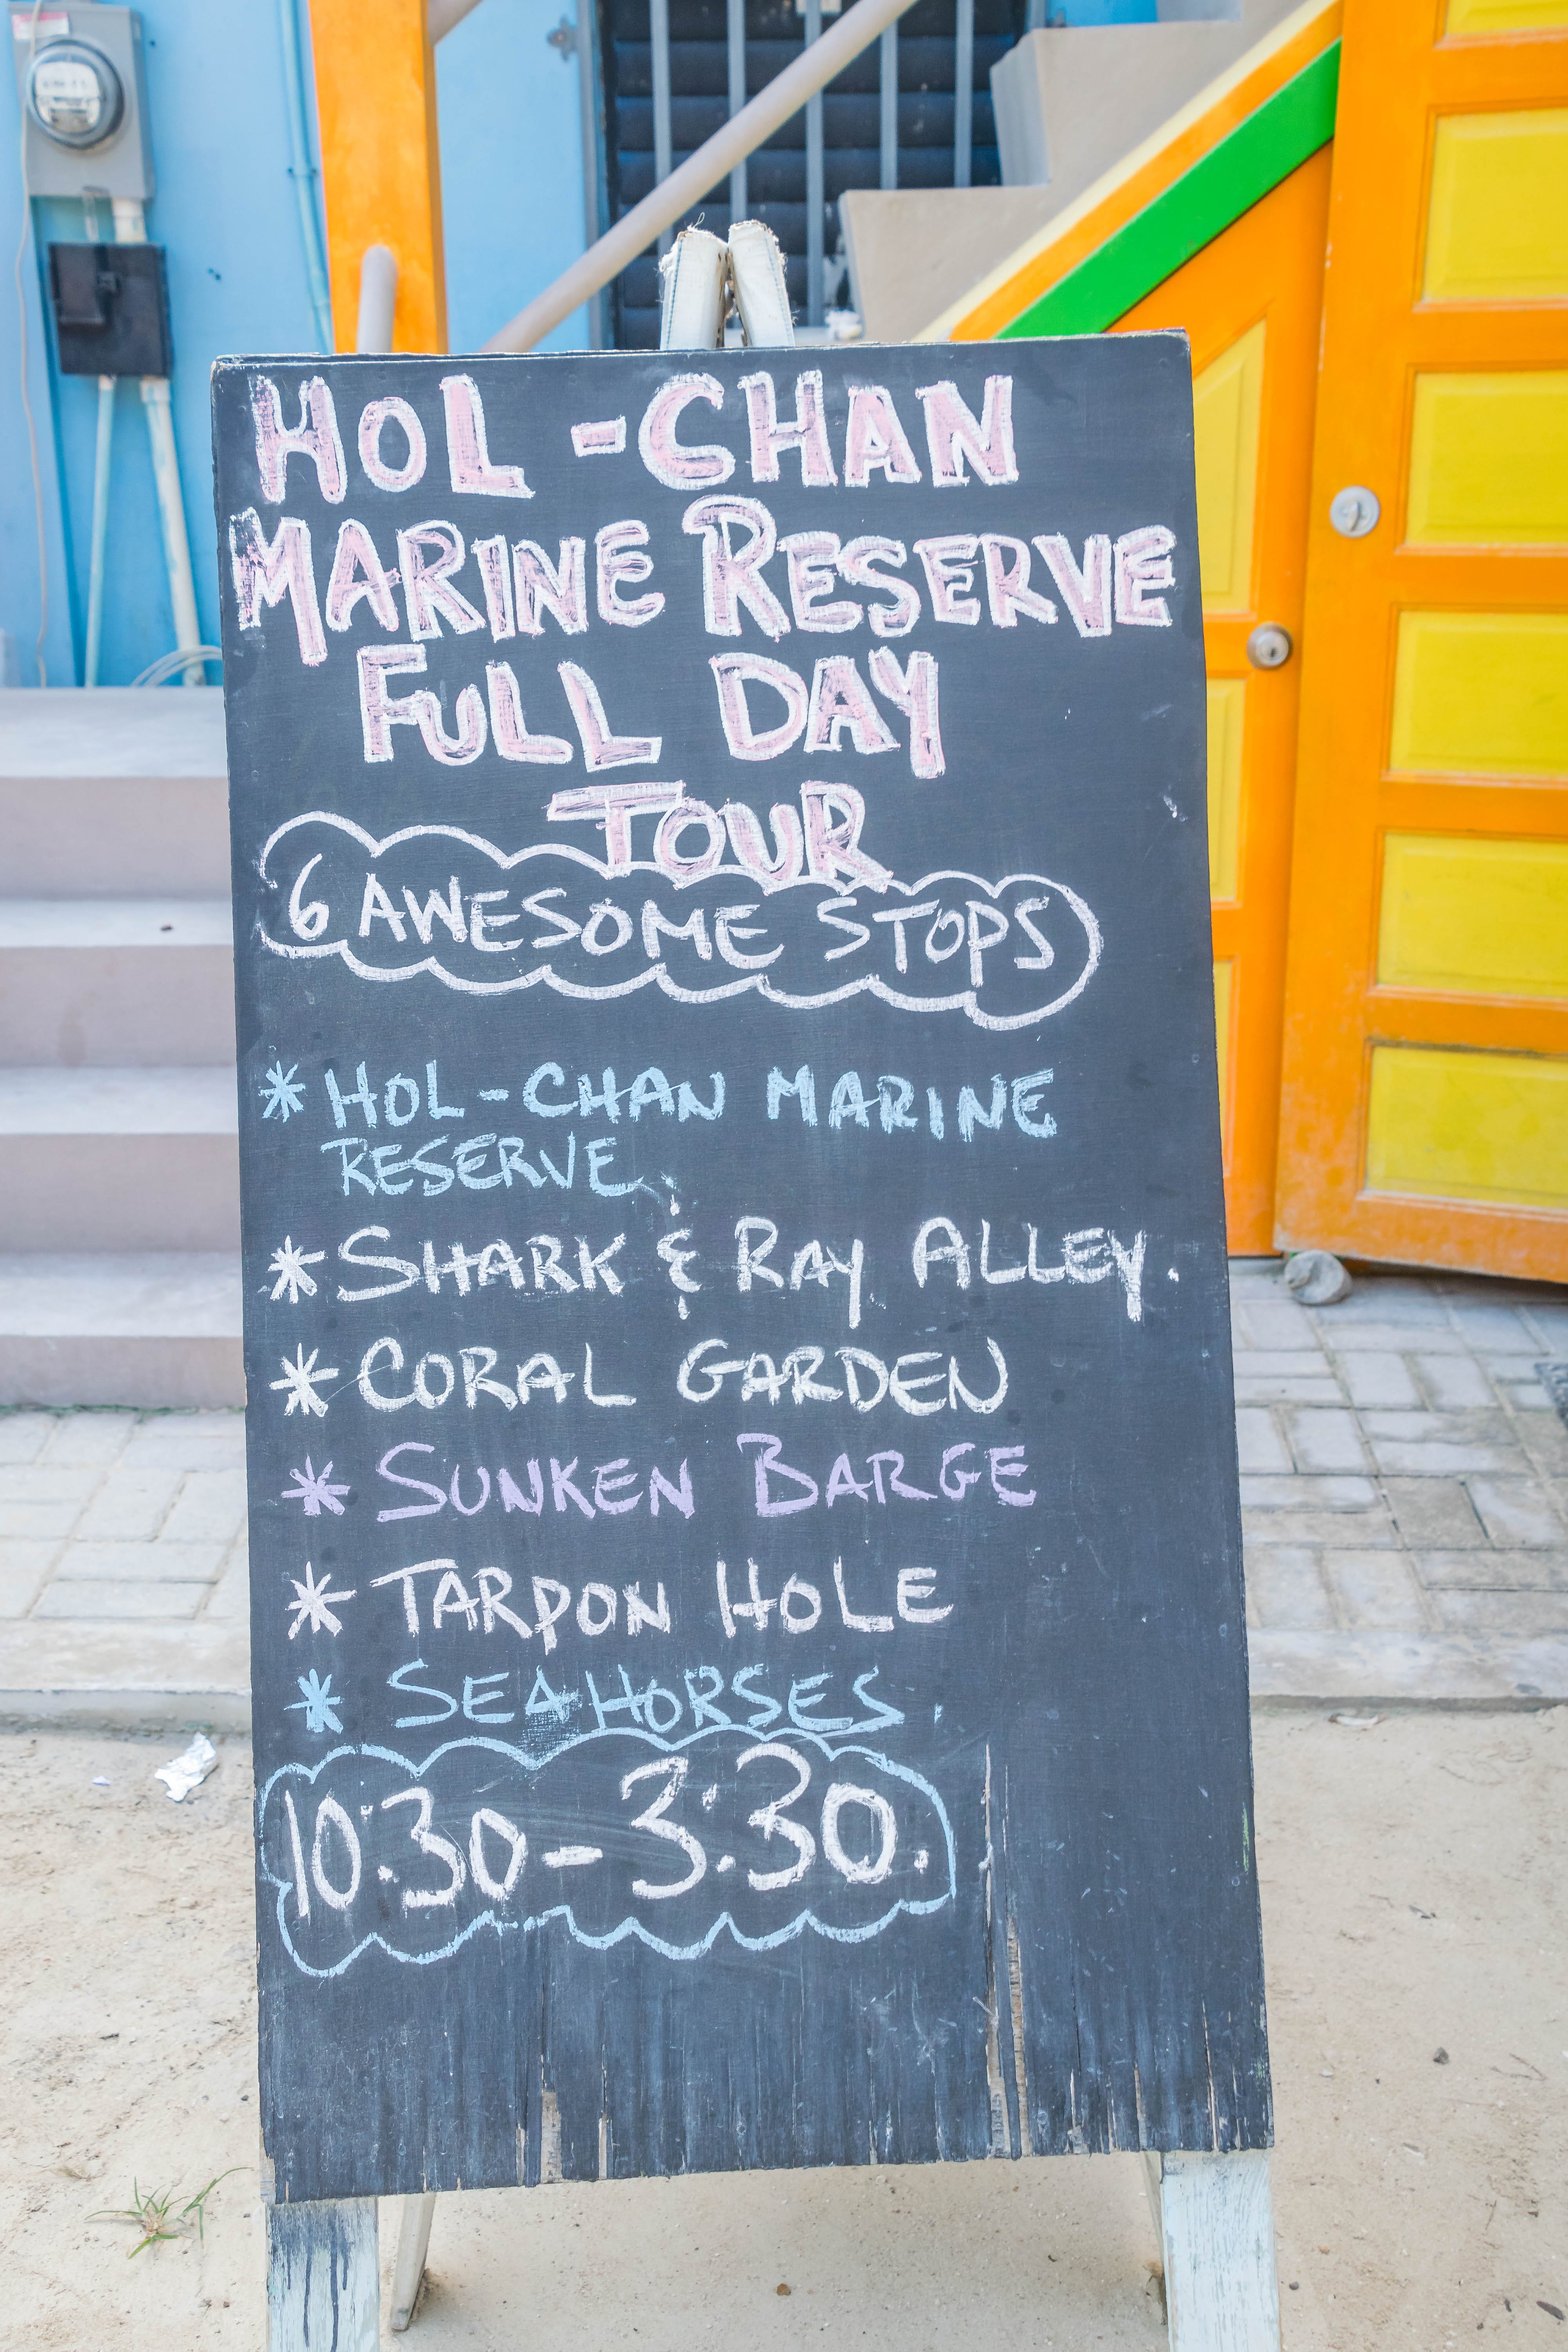 HOL-CHAN
MARINE RESERVE
FULL DAY
TOUR
6 AWESOME STOPS
* HOL-CHAN MARINE
RESERVE.
* SHARK & RAY ALLEY.
* CORAL GARDEN
* SUNKEN BARGE
* TARPON HOLE
* SEAHORSES.
10:30-3:30.